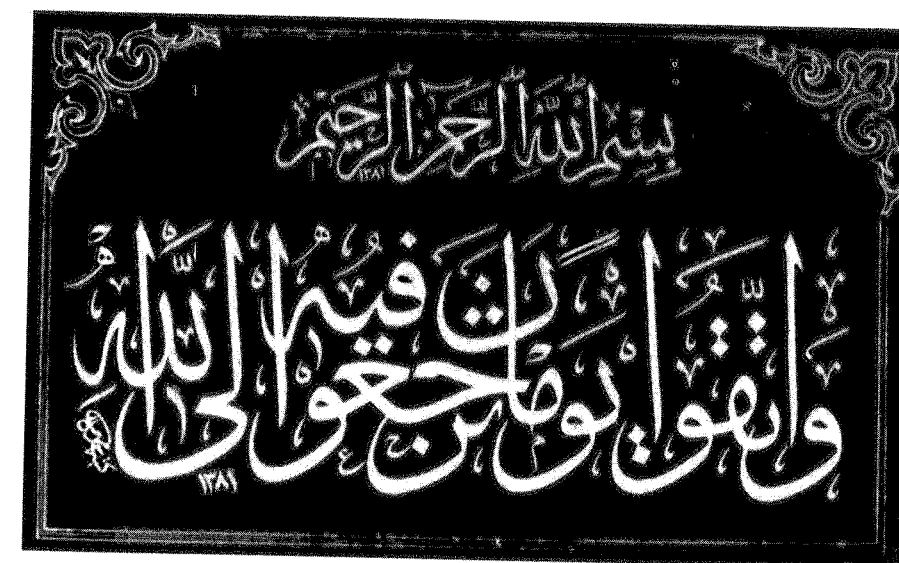 بِسْمِ اللَّهِ الرَّحْمٰنِ الرَّحِيمِ
١٣٨١
وَاتَّقُوا يَوْمًا تُرْجَعُونَ فِيهِ اِلَى اللَّهِ
١٣٨١